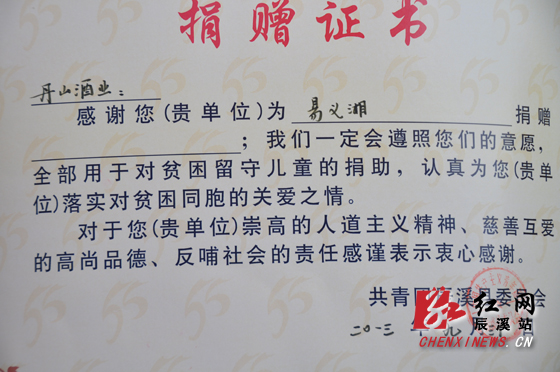 捐赠证书
丹山酒业：
感谢您(贵单位)为 易义湘 捐赠
；我们一定会遵照您们的意愿，
全部用于对贫困留守儿童的捐助，认真为您(贵单
位)落实对贫困同胞的关爱之情。
对于您(贵单位)崇高的人道主义精神、慈善互爱
的高尚品德、反哺社会的责任感谨表示衷心感谢。
共青团辰溪县委员会
二〇一三年九月
红网
辰溪站
CHENXINEWS.CN